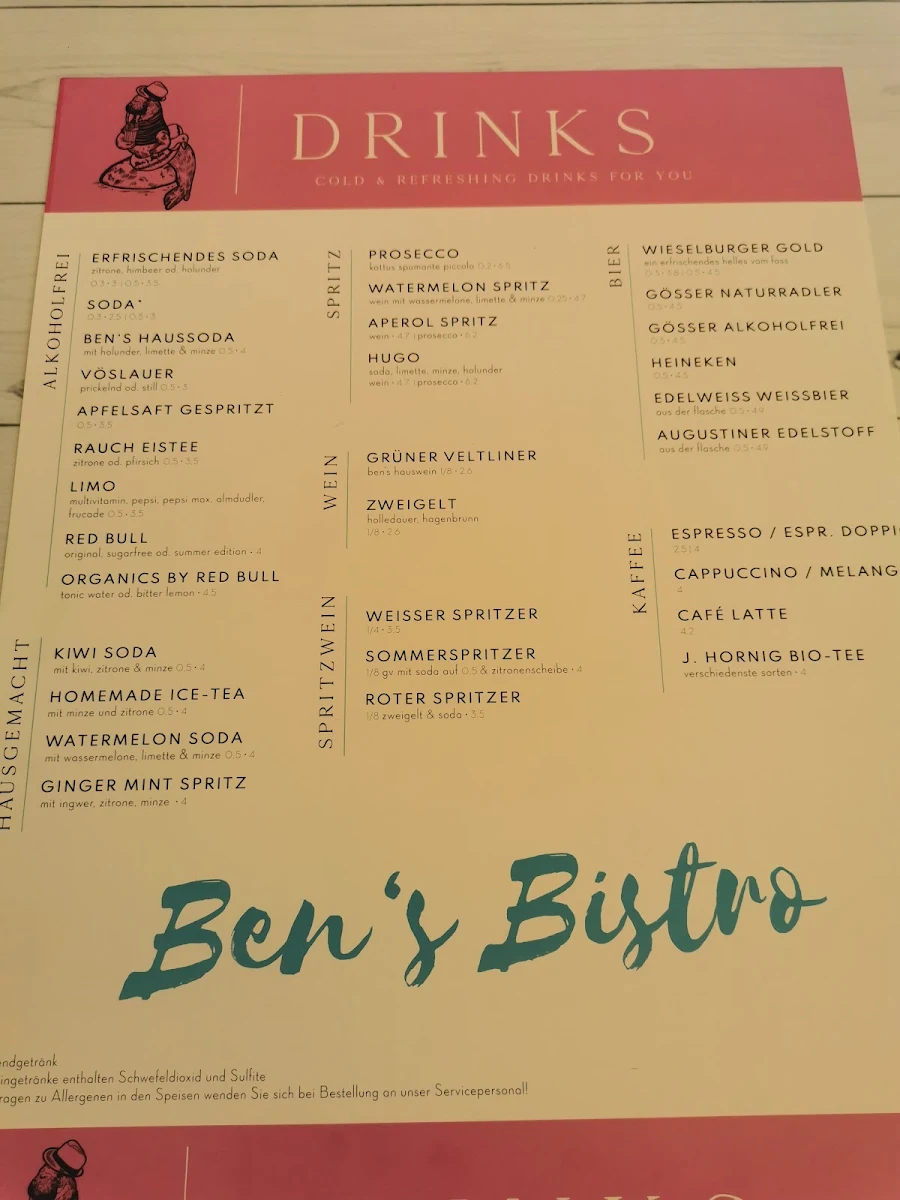 DRINKS
COLD & REFRESHING DRINKS FOR YOU
ALKOHOLFREI
ERFRISCHENDES SODA
zitrone, himbeer od. holunder
0.3 • 3 | 0.5 • 3.5
SODA*
0.3 • 2.5 | 0.5 • 3
BEN'S HAUSSODA
mit holunder, limette & minze 0.5 • 4
VÖSLAUER
prickelnd od. still 0.5 • 3
APFELSAFT GESPRITZT
0.5 • 3.5
RAUCH EISTEE
zitrone od. pfirsich 0.5 • 3.5
LIMO
multivitamin, pepsi, pepsi max, almdudler,
frucade 0.5 • 3.5
RED BULL
original, sugarfree od. summer edition • 4
ORGANICS BY RED BULL
tonic water od. bitter lemon • 4.5
HAUSGEMACHT
KIWI SODA
mit kiwi, zitrone & minze 0.5 • 4
HOMEMADE ICE-TEA
mit minze und zitrone 0.5 • 4
WATERMELON SODA
mit wassermelone, limette & minze 0.5 • 4
GINGER MINT SPRITZ
mit ingwer, zitrone, minze • 4
SPRITZ
PROSECCO
kattus spumante piccolo 0.2 • 6.5
WATERMELON SPRITZ
wein mit wassermelone, limette & minze 0.25 • 4.7
APEROL SPRITZ
wein • 4.7 | prosecco • 6.2
HUGO
soda, limette, minze, holunder
wein • 4.7 | prosecco • 6.2
WEIN
GRÜNER VELTLINER
ben's hauswein 1/8 • 2.6
ZWEIGELT
holledauer, hagenbrunn
1/8 • 2.6
SPRITZWEIN
WEISSER SPRITZER
1/4 • 3.5
SOMMERSPRITZER
1/8 gv mit soda auf 0.5 & zitronenscheibe • 4
ROTER SPRITZER
1/8 zweigelt & soda • 3.5
BIER
WIESELBURGER GOLD
ein erfrischendes helles vom fass
0.3 • 3.8 | 0.5 • 4.5
GÖSSER NATURRADLER
0.5 • 4.5
GÖSSER ALKOHOLFREI
0.5 • 4.5
HEINEKEN
0.5 • 4.5
EDELWEISS WEISSBIER
aus der flasche 0.5 • 4.9
AUGUSTINER EDELSTOFF
aus der flasche 0.5 • 4.9
KAFFEE
ESPRESSO / ESPR. DOPPI
2.5 | 4
CAPPUCCINO / MELANG
4
CAFÉ LATTE
4.2
J. HORNIG BIO-TEE
verschiedenste sorten • 4
Ben's Bistro
endgetränk
ingetränke enthalten Schwefeldioxid und Sulfite
ragen zu Allergenen in den Speisen wenden Sie sich bei Bestellung an unser Servicepersonal!